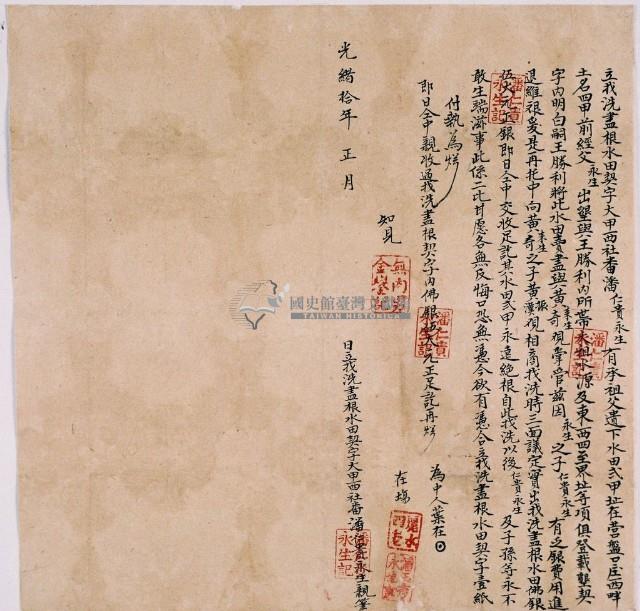 立找洗盡根水田契字大甲西社番潘仁貴永生有承父遺下水田弍甲址在營盤口庄西畔
土名四甲前經父永生出墾與王勝利內所帶水租水源及東西四至界址等項俱登載墾契
字內明白嗣王勝利將此水田賣盡與黃來生奇視掌管茲因永生之子仁貴永生有乏銀費用進
退維艱爰是再托中向黃來生奇之子黃漢振視相商找洗時三面議定實出找洗盡根水田佛銀
伍大元正銀即日仝中交收足訖其水田弍甲永遠絶根自此找洗以後仁貴永生及子孫等永不
敢生端滋事此係二比甘愿各無反悔口恐無憑今欲有憑合立找洗盡根水田契字壹紙
付執為炤
即日仝中親收過找洗盡根契字內佛銀伍大元正足訖再炤
為中人葉在
在場
知見
光緒拾年 正月
日立找洗盡根水田契字大甲西社番潘仁貴永生親筆
潘仁貴
永生記
潘仁貴
永生記
潘仁貴
永生記
永生記
國史館臺灣文獻館
TAIWAN HISTORICA